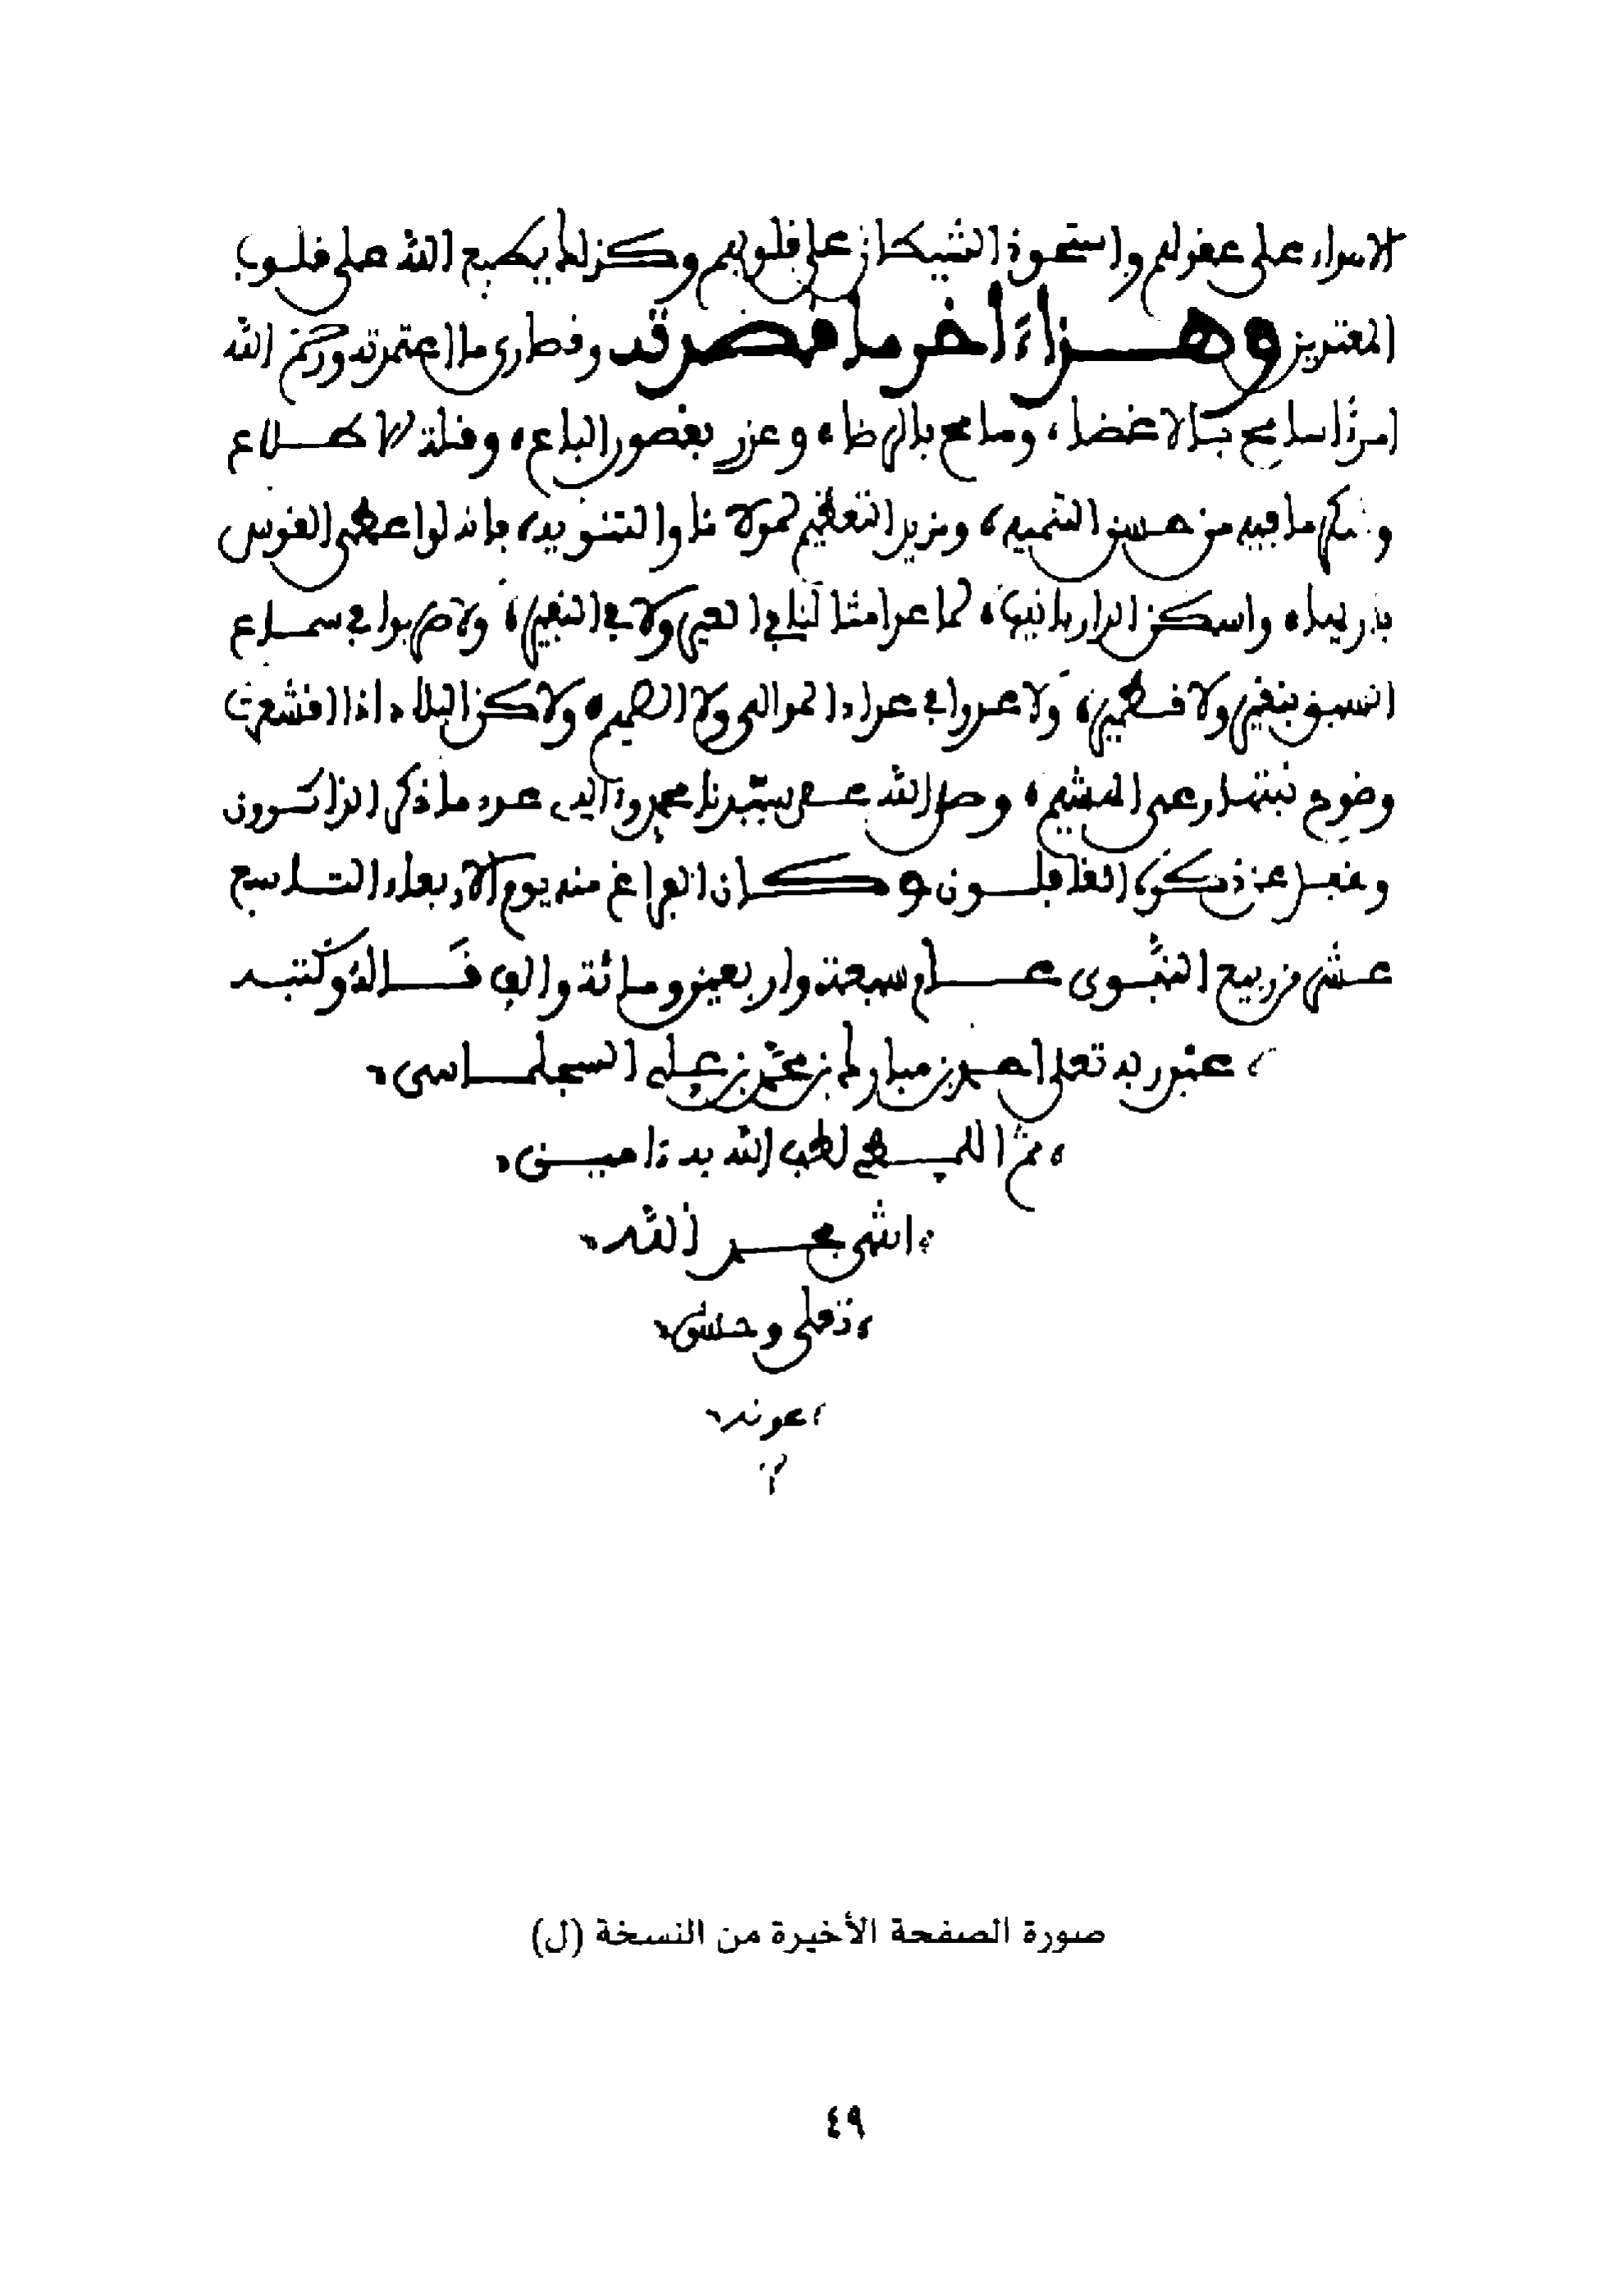 الاسواء على عقولهم واستحوذ الشيطان على قلوبهم وكذلك يطبع الله على قلوب
المعتدين وهذا ءاخر ما قصدته وقصارى ما اعتمدته ورحم الله
امرءا سامح بالاغضاء، وسامح بالرضاء وعذر بقصور الباع، وقلة الاطلاع
ما فيه من حسن التنبيه، ومزيد التعظيم لمولانا والتنويه، فابذلوا عظمى القوس
باريها، واسكن الدار بانيها، فما عدا مثالنا في العير ولا في النفير، ولا ضربوا في سماع
السبق بنقير ولا قطمير، ولا عدوا في عداد الموالى ولا الصميم، ولاكن البلاد اذا اقشعرت
وضوح نبتها رعي الهشيم، وصلى الله على سيدنا محمد وءاله عدد ما ذكره الذاكرون
وغفل عن ذكره الغافلون وكان الفراغ منه يوم الاربعاء التاسع
عشر من ربيع النبوى عام سبعة واربعين ومائة والف قاله وكتبه
عبد ربه تعلى احمد بن مبارك بن محمد بن على السجلماسى
ثم اللمطي لطف الله به ءامين
انتهى بحمد الله
تعلى وحسن
عونه
صورة الصفحة الأخيرة من النسخة (ل)
٤٩